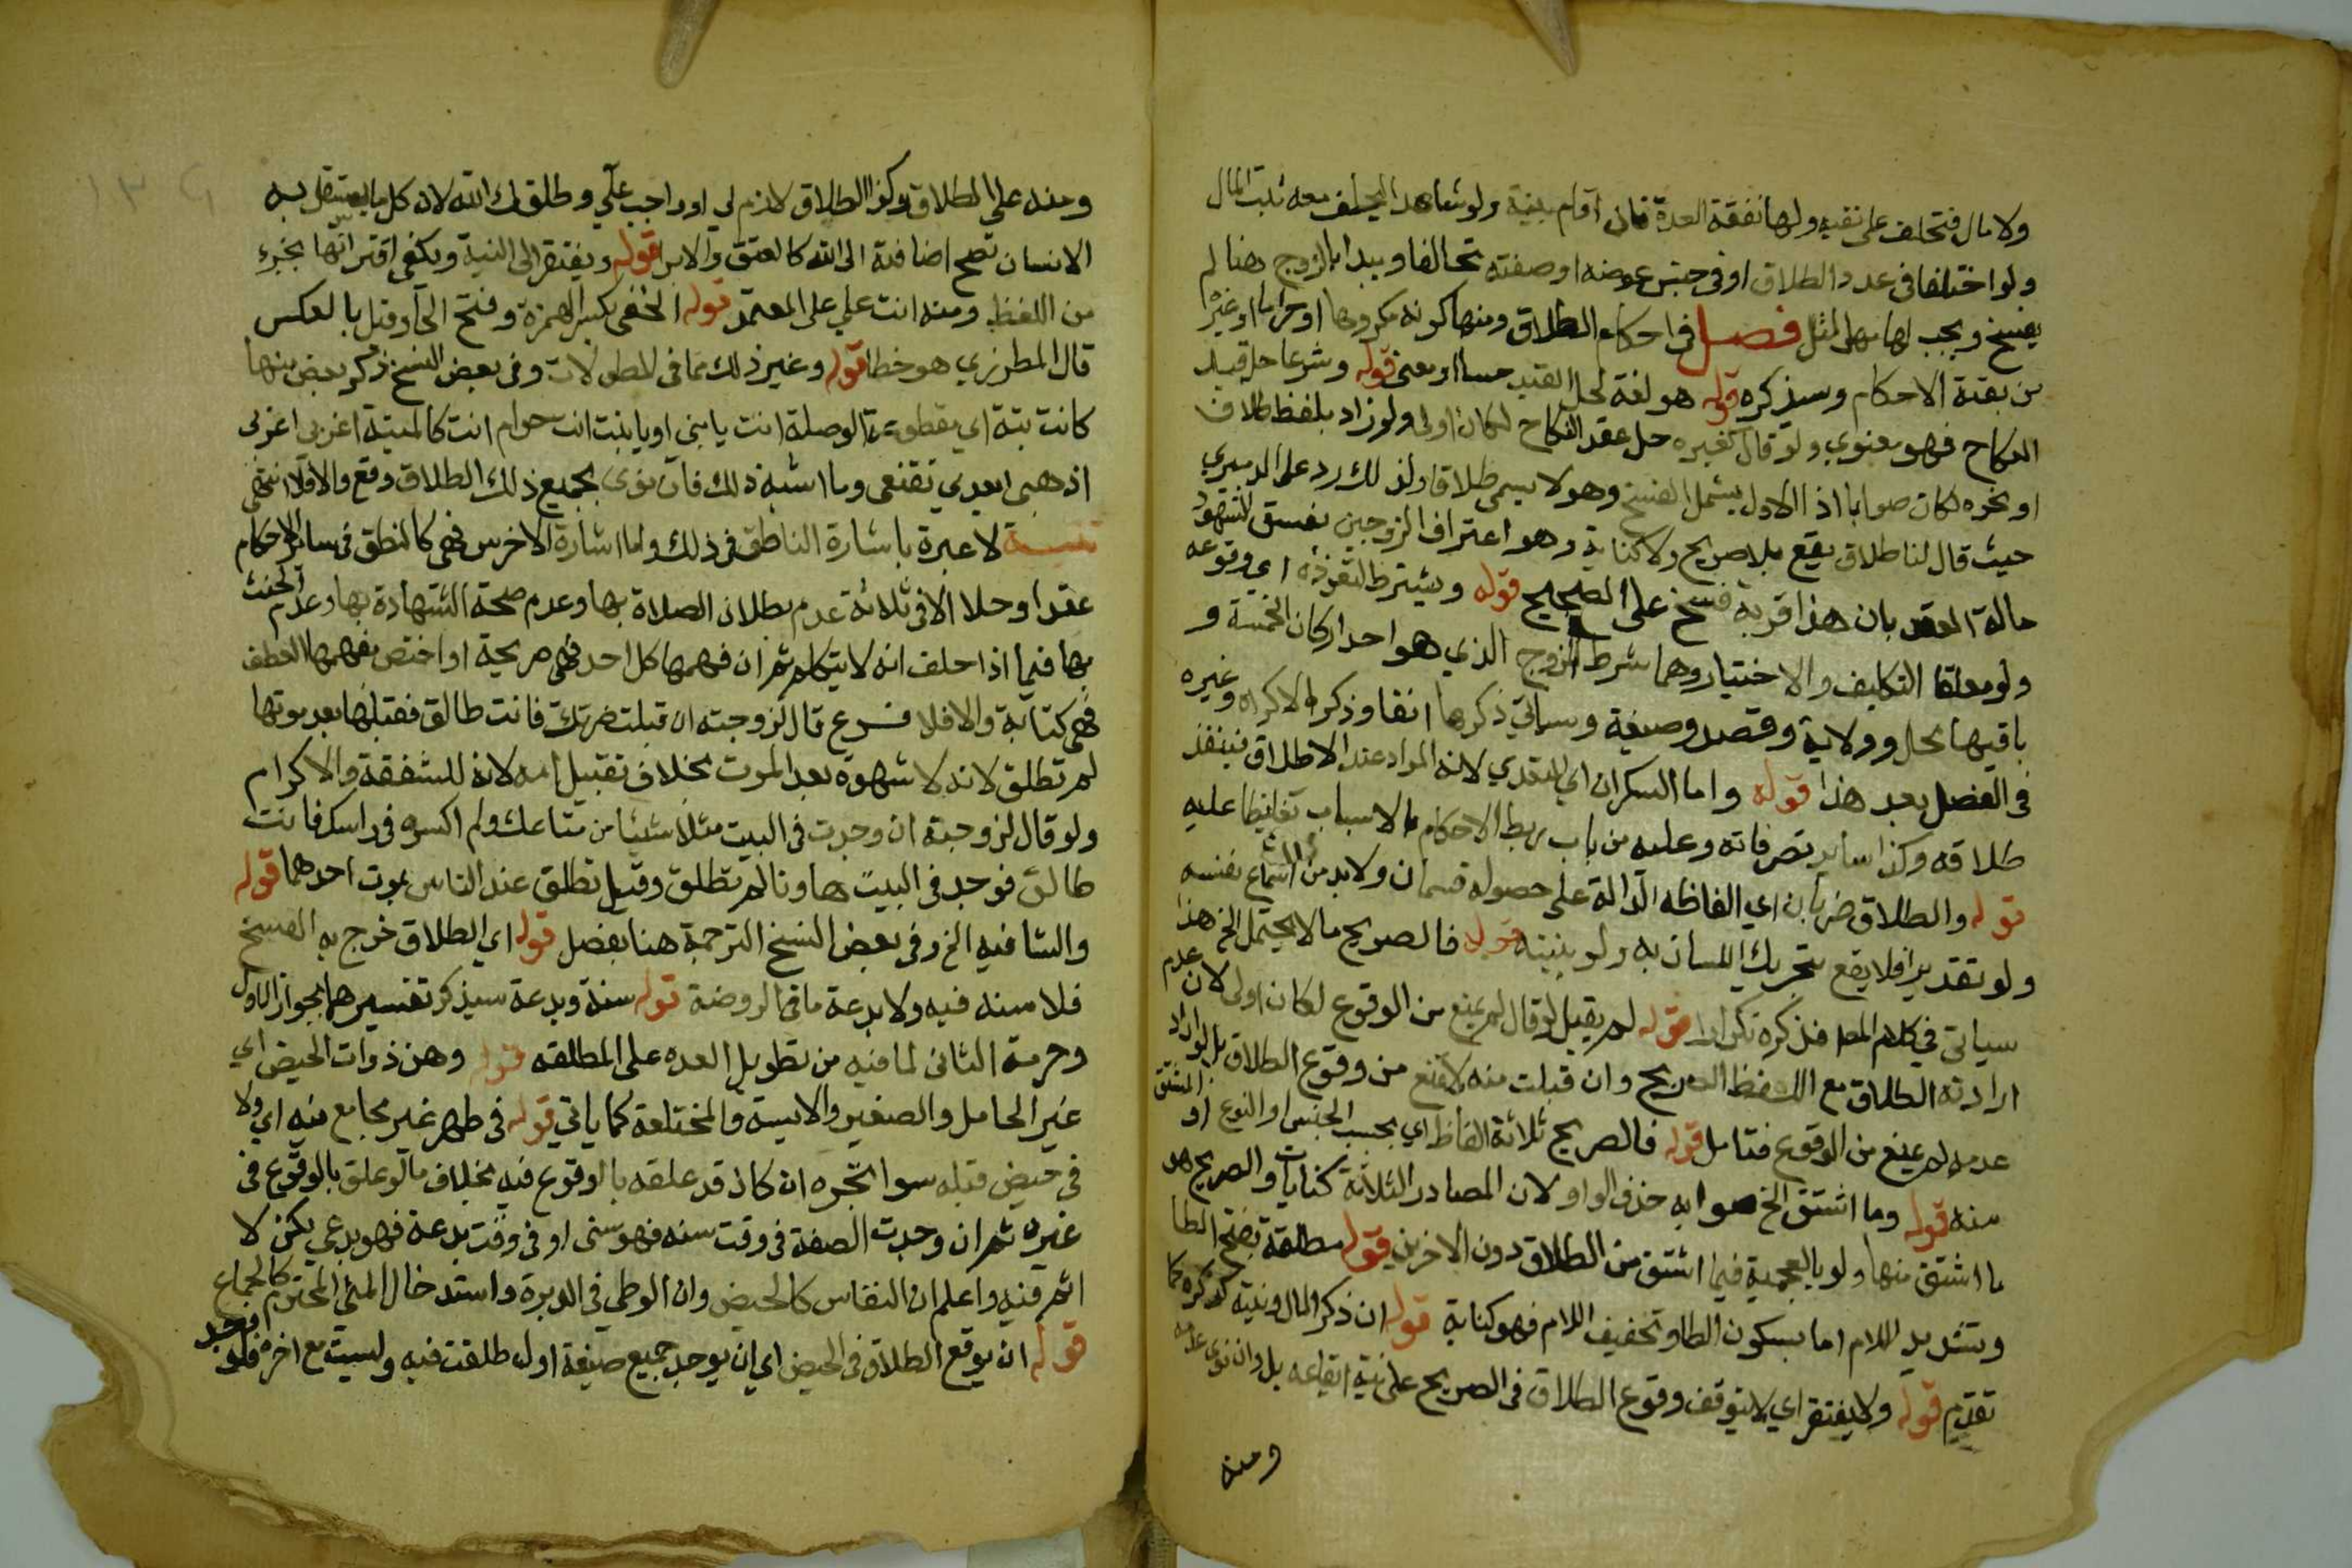 ولا مال فتحلف على نفيه ولها نفقة العدة فان اقام بينة ولو شاهدا ليحلف معه ثبت المال
ولو اختلفا فى عدد الطلاق او فى جنس عوضه او صفته تحالفا ويبدا بالزوج هنا ثم
يفسخ ويجب لها مهر المثل فصل فى احكام الطلاق ومنها كونه مكروها او حراما او غيره
من بقية الاحكام وسيذكره قوله هو لغة لحل القيد حسا او معنى قوله وشرعا حل قيد
النكاح فهو معنوي ولو قال كغيره حل عقد النكاح لكان اولى ولو زاد بلفظ طلاق
او نحوه لكان صوابا اذ الاول يشمل الفسخ وهو لا يسمى طلاقا ولذلك رد على الدميري
حيث قال لنا طلاق يقع بلا صريح ولا كناية وهو اعتراف الزوجين بفسق الشهود
حالة العقد بان هذا فرقة فسخ على الصحيح قوله ويشترط لنفوذه اي وقوعه
ولو معلقا التكليف والاختيار وهما شرط الزوج الذي هو احد اركان الخمسة و
باقيها محل وولاية وقصد وصيغة وسياتي ذكرها انفا وذكر الاكراه وغيره
فى الفصل بعد هذا قوله واما السكران اي المتعدي لانه المراد عند الاطلاق فينفذ
طلاقه وكذا سائر تصرفاته وعليه من باب ربط الاحكام بالاسباب تغليظا عليه
قوله والطلاق ضربان اي الفاظه الدالة على حصوله قسمان ولا بد من اسماع نفسه
ولو تقديرا فلا يقع بتحريك اللسان به ولو بنيته قوله فالصريح ما لا يحتمل الخ هذا
سياتى فى كلام المص فذكره تكرار قوله لم يقبل لو قال لم يمنع من الوقوع لكان اولى لان عدم
ارادته الطلاق مع اللفظ الصريح وان قبلت منه لا تمنع من وقوع الطلاق بل لو اراد
عدمه لم يمنع من الوقوع فتامل قوله فالصريح ثلاثة الفاظ اي بحسب الجنس او النوع او المشتق
منه قوله وما اشتق الخ صوابه حذف الواو لان المصادر الثلاثة كنايات والصريح هو
ما اشتق منها ولو بالعجمية فيما اشتق من الطلاق دون الاخرين قوله مطلقة بفتح الطا
وتشديد اللام اما بسكون الطا وتخفيف اللام فهو كناية قوله ان ذكر المال ونيته كذكره كما
تقدم قوله ولا يفتقر اي لا يتوقف وقوع الطلاق فى الصريح على نية ايقاعه بل وان نوى عدمه
ومنه
ومنه على الطلاق وكذا الطلاق لازم لي او واجب علي وطلقك الله لان كل ما يستقل به
الانسان تصح اضافته الى الله كالعتق والابرا قوله ويفتقر الى النية ويكفى اقترانها بجزء
من اللفظ ومنه انت علي على المعتمد قوله الحقى بكسر الهمزة وفتح الحا وقيل بالعكس
قال المطرزي هو خطا قوله وغير ذلك مما فى المطولات وفى بعض النسخ ذكر بعض منها
كانت بتة اي مقطوعة الوصلة انت يا بنى او يا بنت انت حرام انت كالميتة اغربى اغزبى
اذهبى ابعدي تقنعى وما اشبه ذلك فان نوى بجميع ذلك الطلاق وقع والا فلا انتهى
تنبيه لا عبرة باشارة الناطق فى ذلك واما اشارة الاخرس فهى كالنطق فى سائر الاحكام
عقدا وحلا الا فى ثلاثة عدم بطلان الصلاة بها وعدم صحة الشهادة بها وعدم الحنث
بها فيما اذا حلف انه لا يتكلم ثم ان فهمها كل احد فهى صريحة او اختص بفهمها الفطن
فهى كناية والا فلا فرع قال لزوجته ان قبلت ضرتك فانت طالق فقبلها بعد موتها
لم تطلق لانه لا شهوة بعد الموت بخلاف تقبيل امه لانه للشفقة والاكرام
ولو قال لزوجته ان وجدت فى البيت مثلا شيئا من متاعك ولم اكسره فى راسك فانت
طالق فوجد فى البيت هاونا لم تطلق وقيل تطلق عند الياس بموت احدهما قوله
والشافيه الخ وفى بعض النسخ الترجمة هنا بفصل قوله اي الطلاق خرج به الفسخ
فلا سنه فيه ولا بدعة ما فى الروضة قوله سنة وبدعة سيذكر تفسيرهما بجواز الاول
وحرمة الثانى لما فيه من تطويل العده على المطلقه قوله وهن ذوات الحيض اي
غير الحامل والصغيرة والايسة والمختلعة كما ياتي قوله فى طهر غير مجامع فيه اي ولا
فى حيض قبله سوا نجزه ان كان قد علقه بالوقوع فيه بخلاف ما لو علق بالوقوع فى
غيره ثم ان وجدت الصفة فى وقت سنه فهو سنى او فى وقت بدعة فهو بدعي لكن لا
اثم فيه واعلم ان النفاس كالحيض وان الوطي فى الدبر واستدخال المني المحترم كالجماع
قوله ان يوقع الطلاق فى الحيض اي ان يوجد جميع صيغة اول طلقت فيه وليست مع اخره فلو وجد